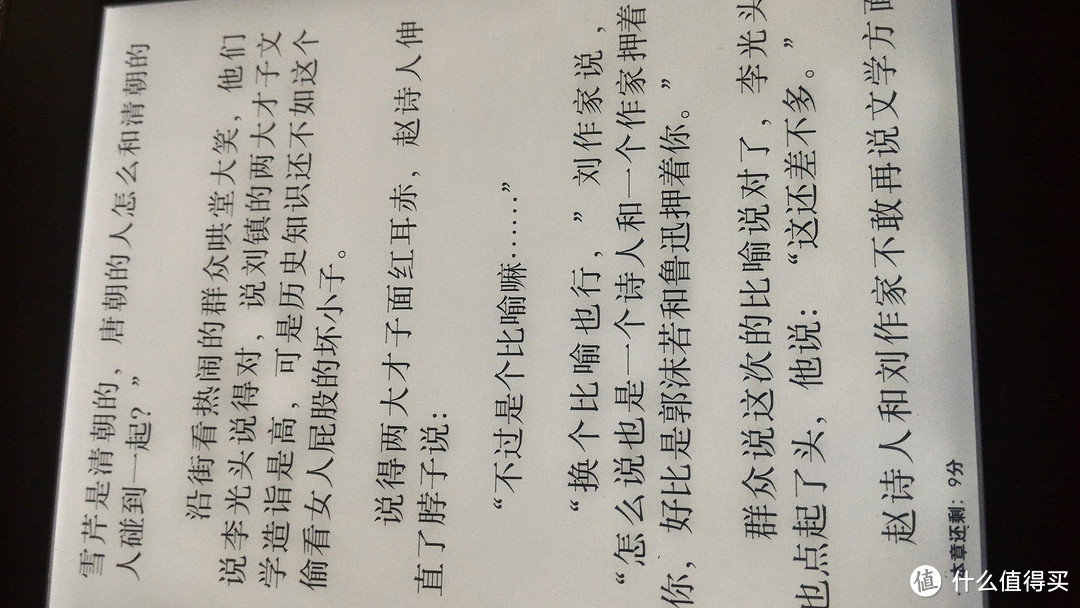 雪芹是清朝的，唐朝的人怎么和清朝的
人碰到一起？”
沿街看热闹的群众哄堂大笑，他们
说李光头说得对，说刘镇的两大才子文
学造诣是高，可是历史知识还不如这个
偷看女人屁股的坏小子。
说得两大才子面红耳赤，赵诗人伸
直了脖子说：
“不过是个比喻嘛……”
“换个比喻也行，”刘作家说，
“怎么说也是一个诗人和一个作家押着
你，好比是郭沫若和鲁迅押着你。”
群众说这次的比喻说对了，李光头
也点起了头，他说：“这还差不多。”
赵诗人和刘作家不敢再说文学方面
本章还剩：9分
值 什么值得买